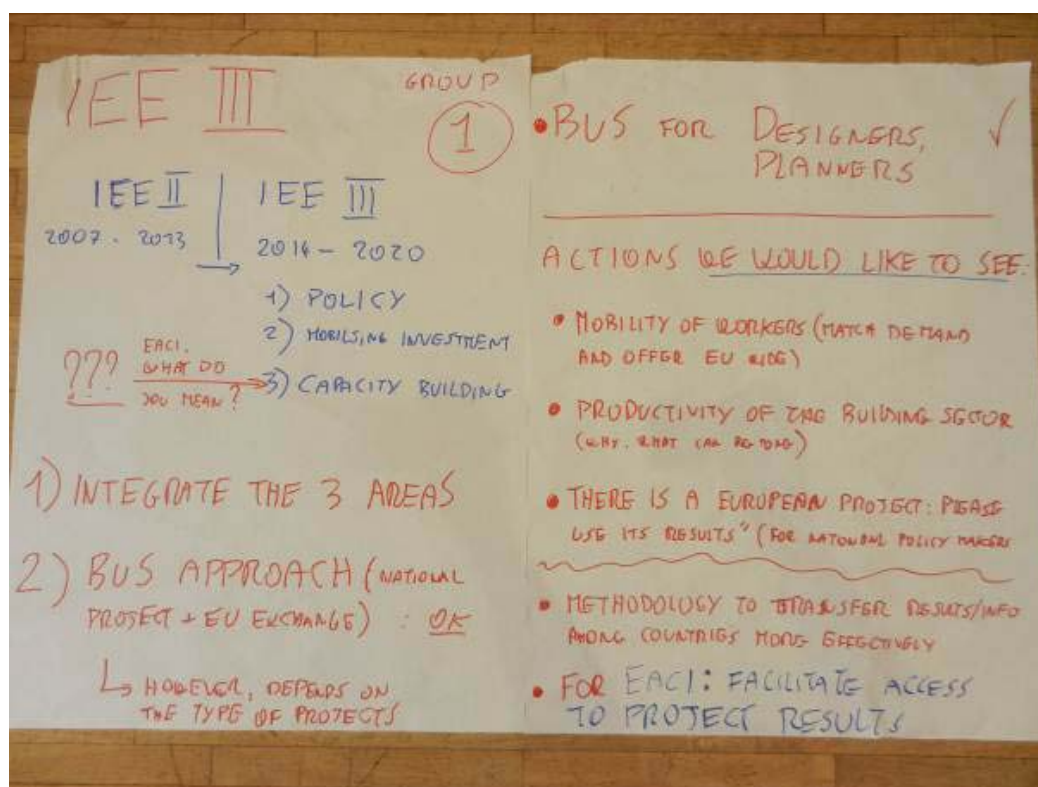 IEE III
GROUP
1
IEE II
2007 - 2013
IEE III
2014 - 2020
1) POLICY
2) MOBILSING INVESTMENT
3) CAPACITY BUILDING
???
EACI.
WHAT DO
YOU MEAN?
1) INTEGRATE THE 3 AREAS
2) BUS APPROACH (NATIONAL
PROJECT + EU EXCHANGE) : OK
HOWEVER, DEPENDS ON
THE TYPE OF PROJECTS
• BUS FOR DESIGNERS, ✓
PLANNERS
ACTIONS WE WOULD LIKE TO SEE:
• MOBILITY OF WORKERS (MATCH DEMAND
AND OFFER EU WIDE)
• PRODUCTIVITY OF THE BUILDING SECTOR
(WHY. WHAT CAN BE DONE)
• THERE IS A EUROPEAN PROJECT: PLEASE
USE ITS RESULTS" (FOR NATIONAL POLICY MAKERS
• METHODOLOGY TO TRANSFER RESULTS/INFO
AMONG COUNTRIES MORE EFFECTIVELY
• FOR EACI: FACILITATE ACCESS
TO PROJECT RESULTS